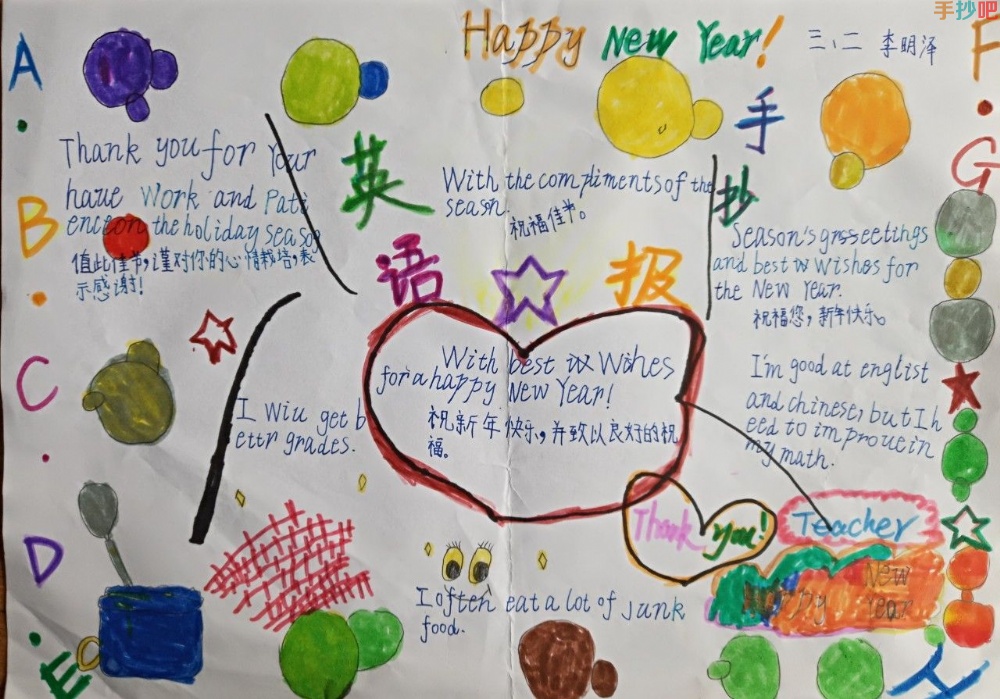 手抄吧
Happy New Year!
三、二 李明泽
A
B
C
D
E
F
G
手
抄
英
语
报
Thank you for your
haue Work and Pati
ence on the holiday season
值此佳节,谨对你的心情栽培,表
示感谢!
With the compliments of the
seasn.
祝福佳节。
Season's grsseetings
and best w Wishes for
the New Year.
祝福您,新年快乐。
With best ix Wihes
for a happy New Year!
祝新年快乐,并致以良好的祝
福。
I Wiu get b
ettr grades.
I'm good at englist
and chinese, but I h
eed to improue in
my math.
Thank you!
Teacher
Happy New
Year
I often eat a lot of Junk
food.